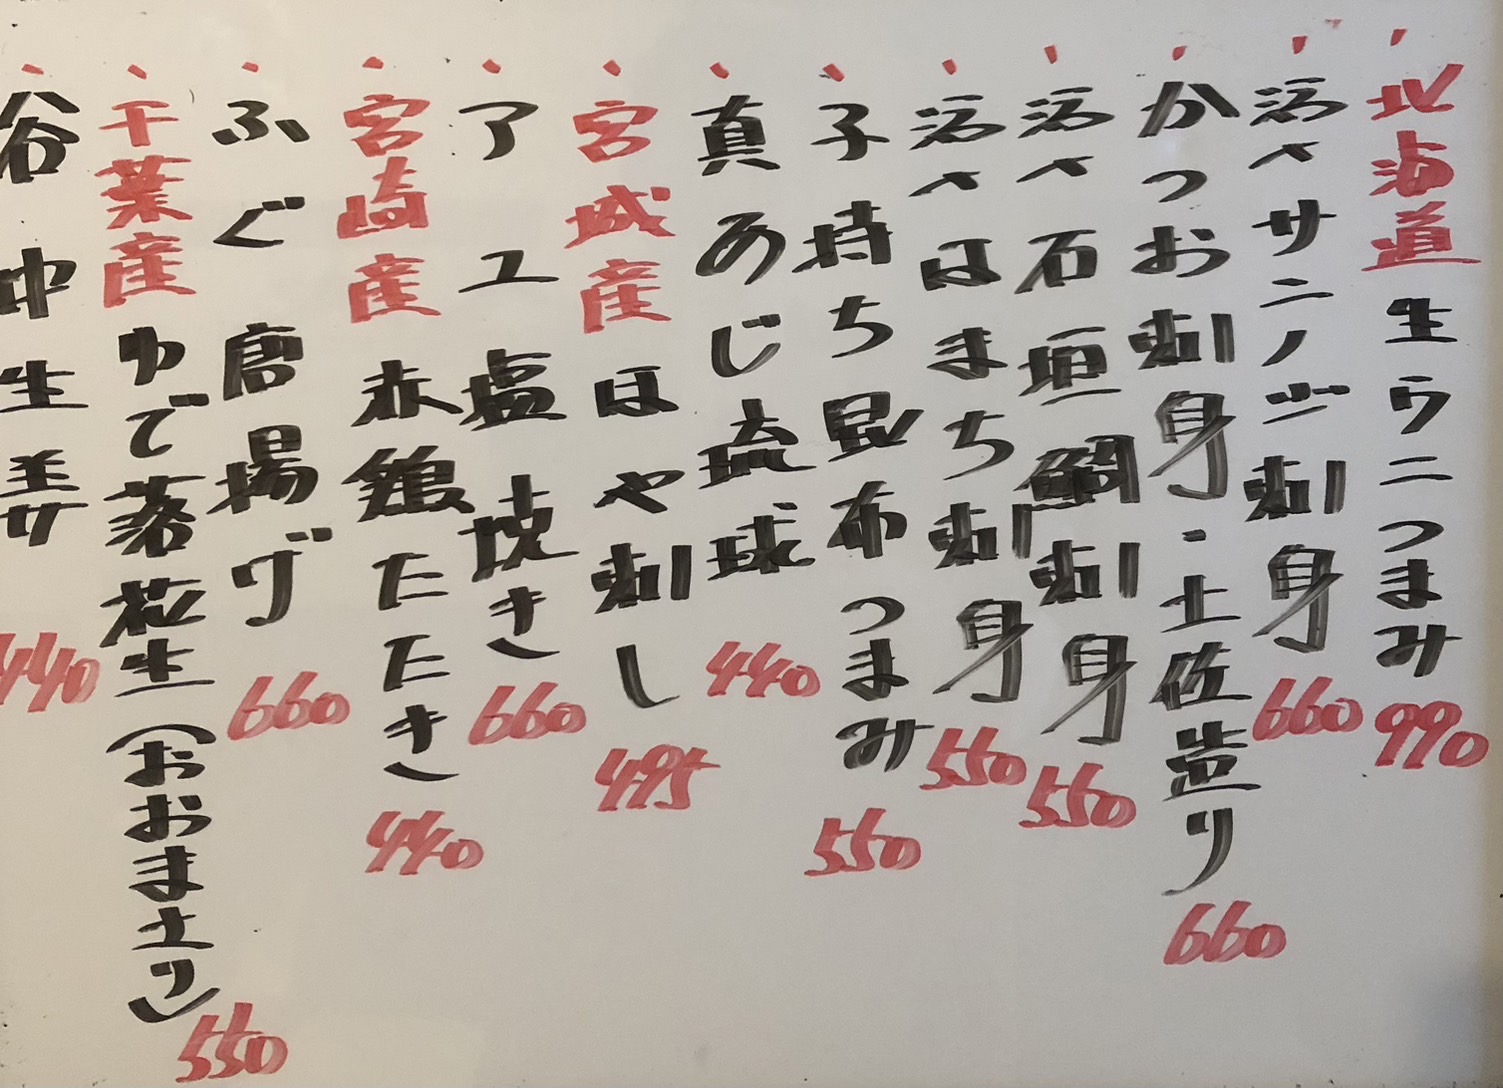 ・北海道生ウニつまみ 990
・活〆サンノジ刺身 660
・かつお刺身・土佐造り 660
・活〆石垣鯛刺身 550
・活〆はまち刺身 550
・子持ち昆布つまみ 550
・真あじ琉球 440
・宮城産ほや刺し 495
・アユ塩焼き 660
・宮崎産赤鶏たたき 440
・ふぐ唐揚げ 660
・千葉産ゆで落花生(おおまさり) 550
・谷中生姜 440